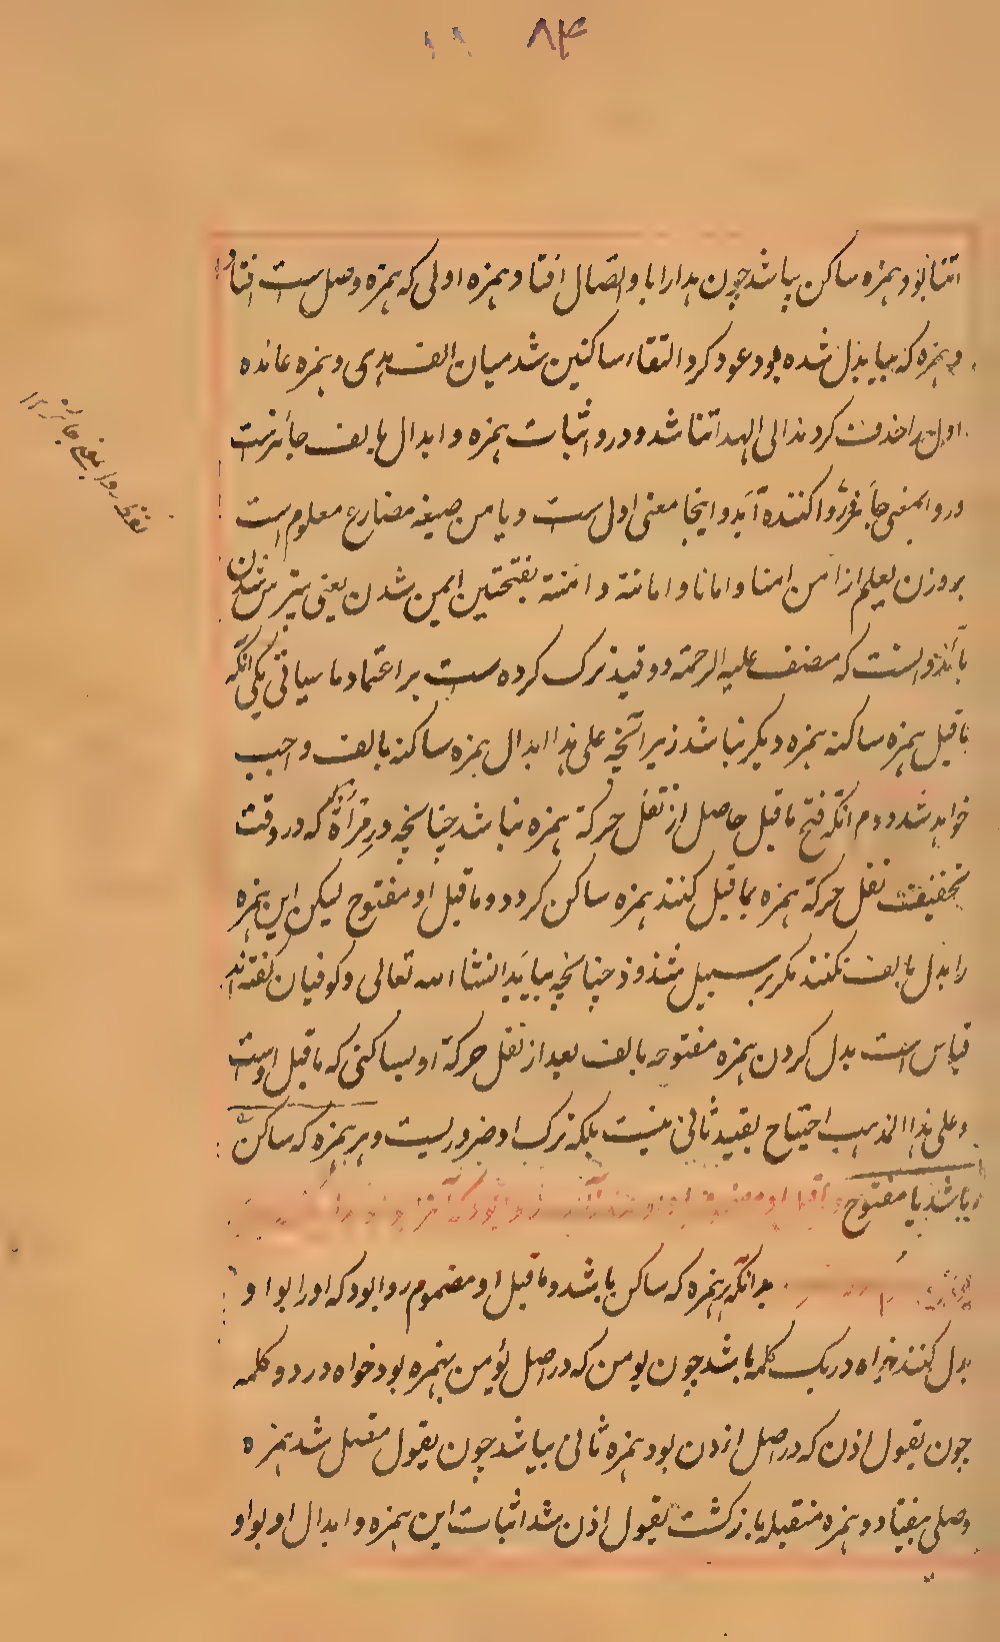 ۸۴
ائتنا بود همزه ساکن بیا شد چون هدا را با و اتصال افتاد همزه اولی که همزه وصل ست افتاد
و همزه که بیا بدل شده بود عود کرد التقاء ساکنین شد میان الف هدی و همزه عائده
اول را حذف کردند الی الهداتنا شد و درو اثبات همزه و ابدال بالف جائزست
و روا بمعنی جائز و روا کننده آید و اینجا معنی اول ست و یامن صیغه مضارع معلوم است
بر وزن یعلم از امن امنا و امانا و امانة و امنة بفتحتین ایمن شدن یعنی بیترس شدن
باید دانست که مصنف علیه الرحمة دو قید ترک کرده ست بر اعتماد ما سیاتی یکی انکه
ماقبل همزه ساکنه همزه دیکر نباشد زیرا نچه علی هذا ابدال همزه ساکنه بالف واجب
خواهد شد دوم انکه فتح ماقبل حاصل از نقل حرکة همزه نباشد چنانچه در مرأة که در وقت
تخفیفش نقل حرکة همزه بماقبل کنند همزه ساکن کردد و ماقبل او مفتوح لیکن این همزه
را بدل بالف نکنند مکر بر سبیل شذوذ چنانچه بیاید انشاء الله تعالی و کوفیان کفته اند
قیاس است بدل کردن همزه مفتوحه بالف بعد از نقل حرکة او بساکنی که ماقبل اوست
و علی هذا المذهب احتیاج بقید ثانی نیست بلکه ترک او ضروریست و هر همزه که ساکن
باشد یا مفتوح
بدانکه هر همزه که ساکن باشد و ماقبل او مضموم روا بود که او را بواو
بدل کنند خواه در یک کلمه باشد چون یومن که در اصل یؤمن بهمزه بود خواه در دو کلمه
چون یقول اذن که در اصل اءذن بود همزه ثانی بیا شد چون یقول متصل شد همزه
وصلی بیفتاد و همزه منقلبه باز کشت یقول اذن شد اثبات این همزه و ابدال او بواو